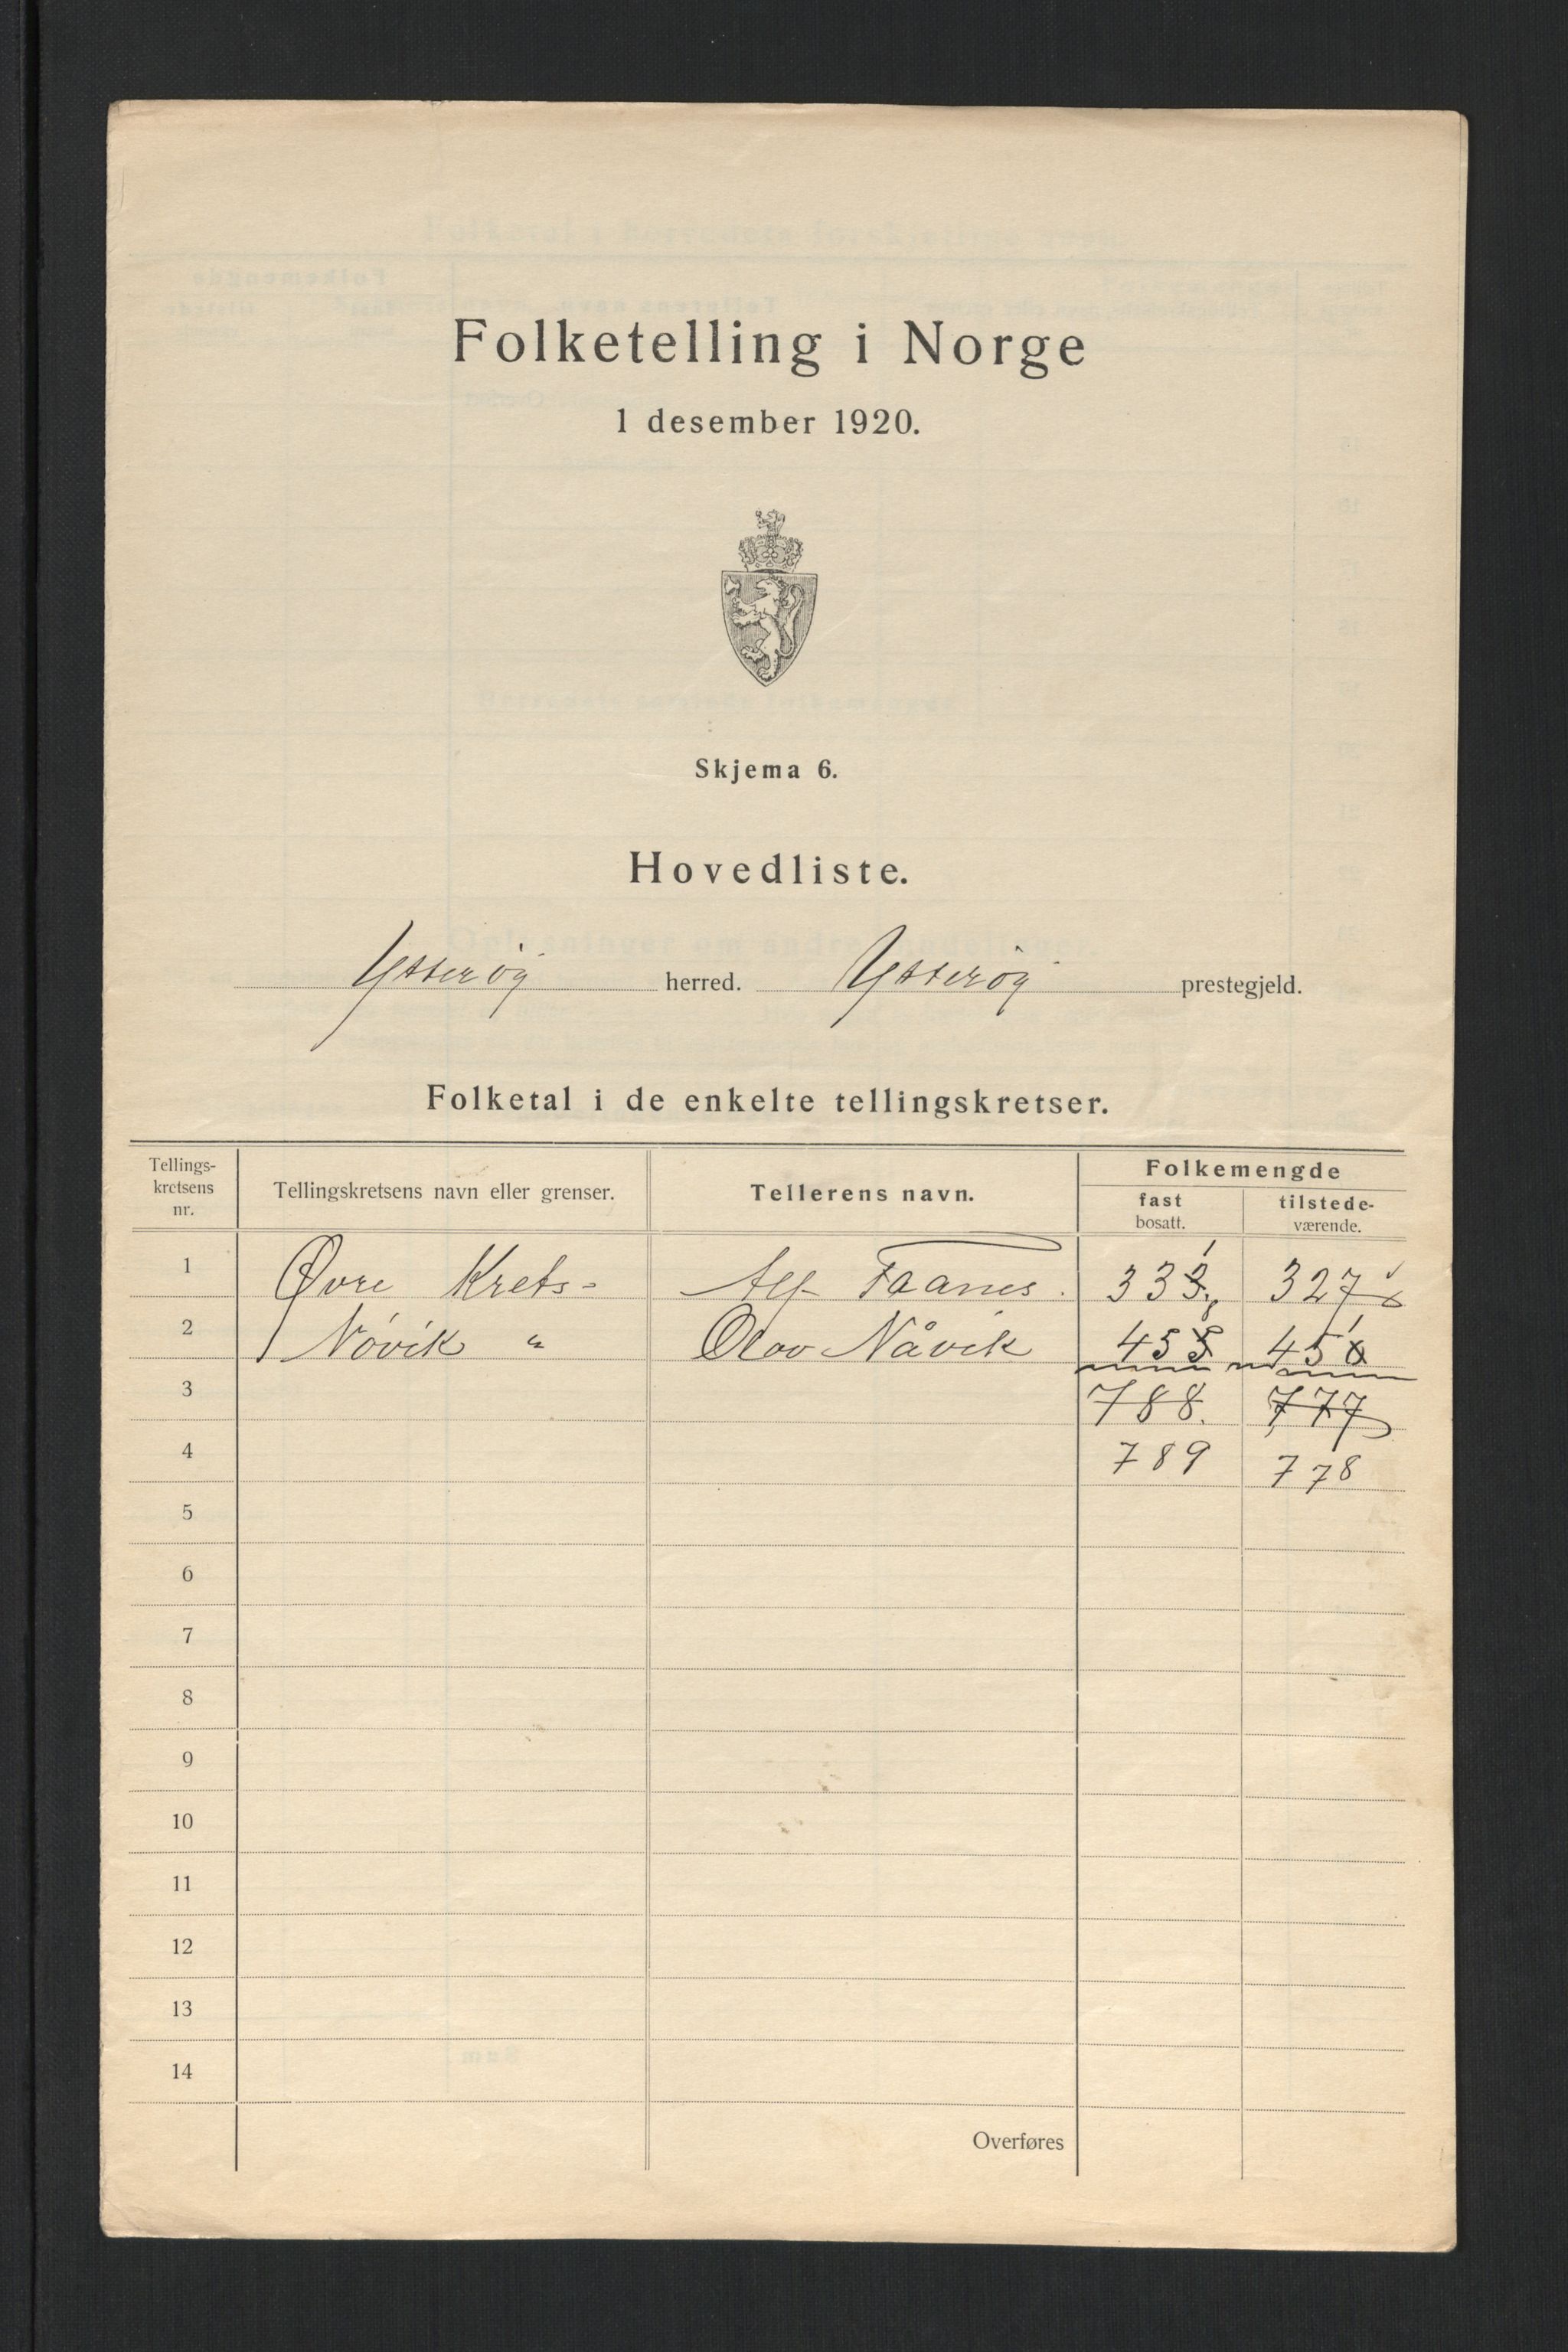 Folketelling i Norge
1 desember 1920.
Skjema 6.
Hovedliste.
Ytterøy herred. Ytterøy prestegjeld.
Folketal i de enkelte tellingskretser.
Tellings-kretsens nr. Tellingskretsens navn eller grenser. Tellerens navn. Folkemengde
fast bosatt. tilstede-værende.
1 Øvre Krets- Alf Faanes. 333 327
2 Nøvik " Olav Nåvik 455 451
3 788. 777
4 789 778
5
6
7
8
9
10
11
12
13
14
Overføres